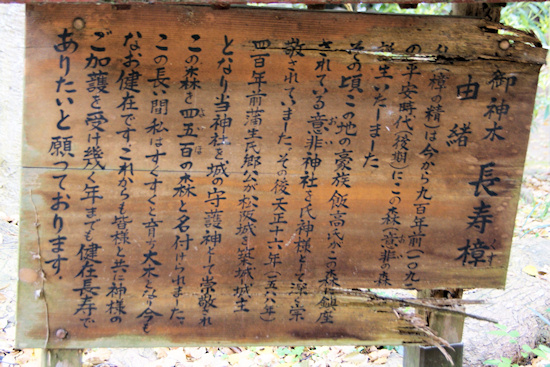 御神木 長寿樟
くす
由緒
樟の精)は今から九百年前(一〇九
の平安時代(後期)にこの森(意非の森
おい
誕生いたしました
その頃この地の豪族飯高氏がこの森に鎮座
されている意非神社を氏神様として深く崇
おい
敬されていました。その後天正十六年(一五八八年)
四百年前蒲生氏郷公が松阪城を築城、城主
となり当神社を城の守護神として崇敬され
この森を四五百の森と名付けられました。
この長い間私はすくすくと育ち大木となり今も
なお健在です。これからも皆様と共に神様の
ご加護を受け幾く年までも健在長寿で
ありたいと願っております。